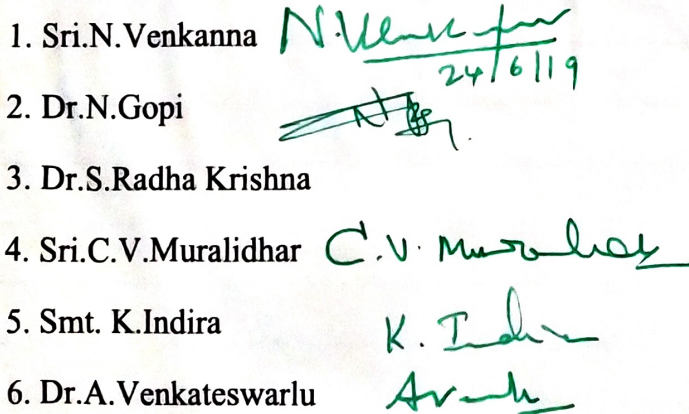 1. Sri.N.Venkanna N.Venkanna
24/6/19
2. Dr.N.Gopi
3. Dr.S.Radha Krishna
4. Sri.C.V.Muralidhar C.V. Muralidhar
5. Smt. K.Indira K. Indira
6. Dr.A.Venkateswarlu